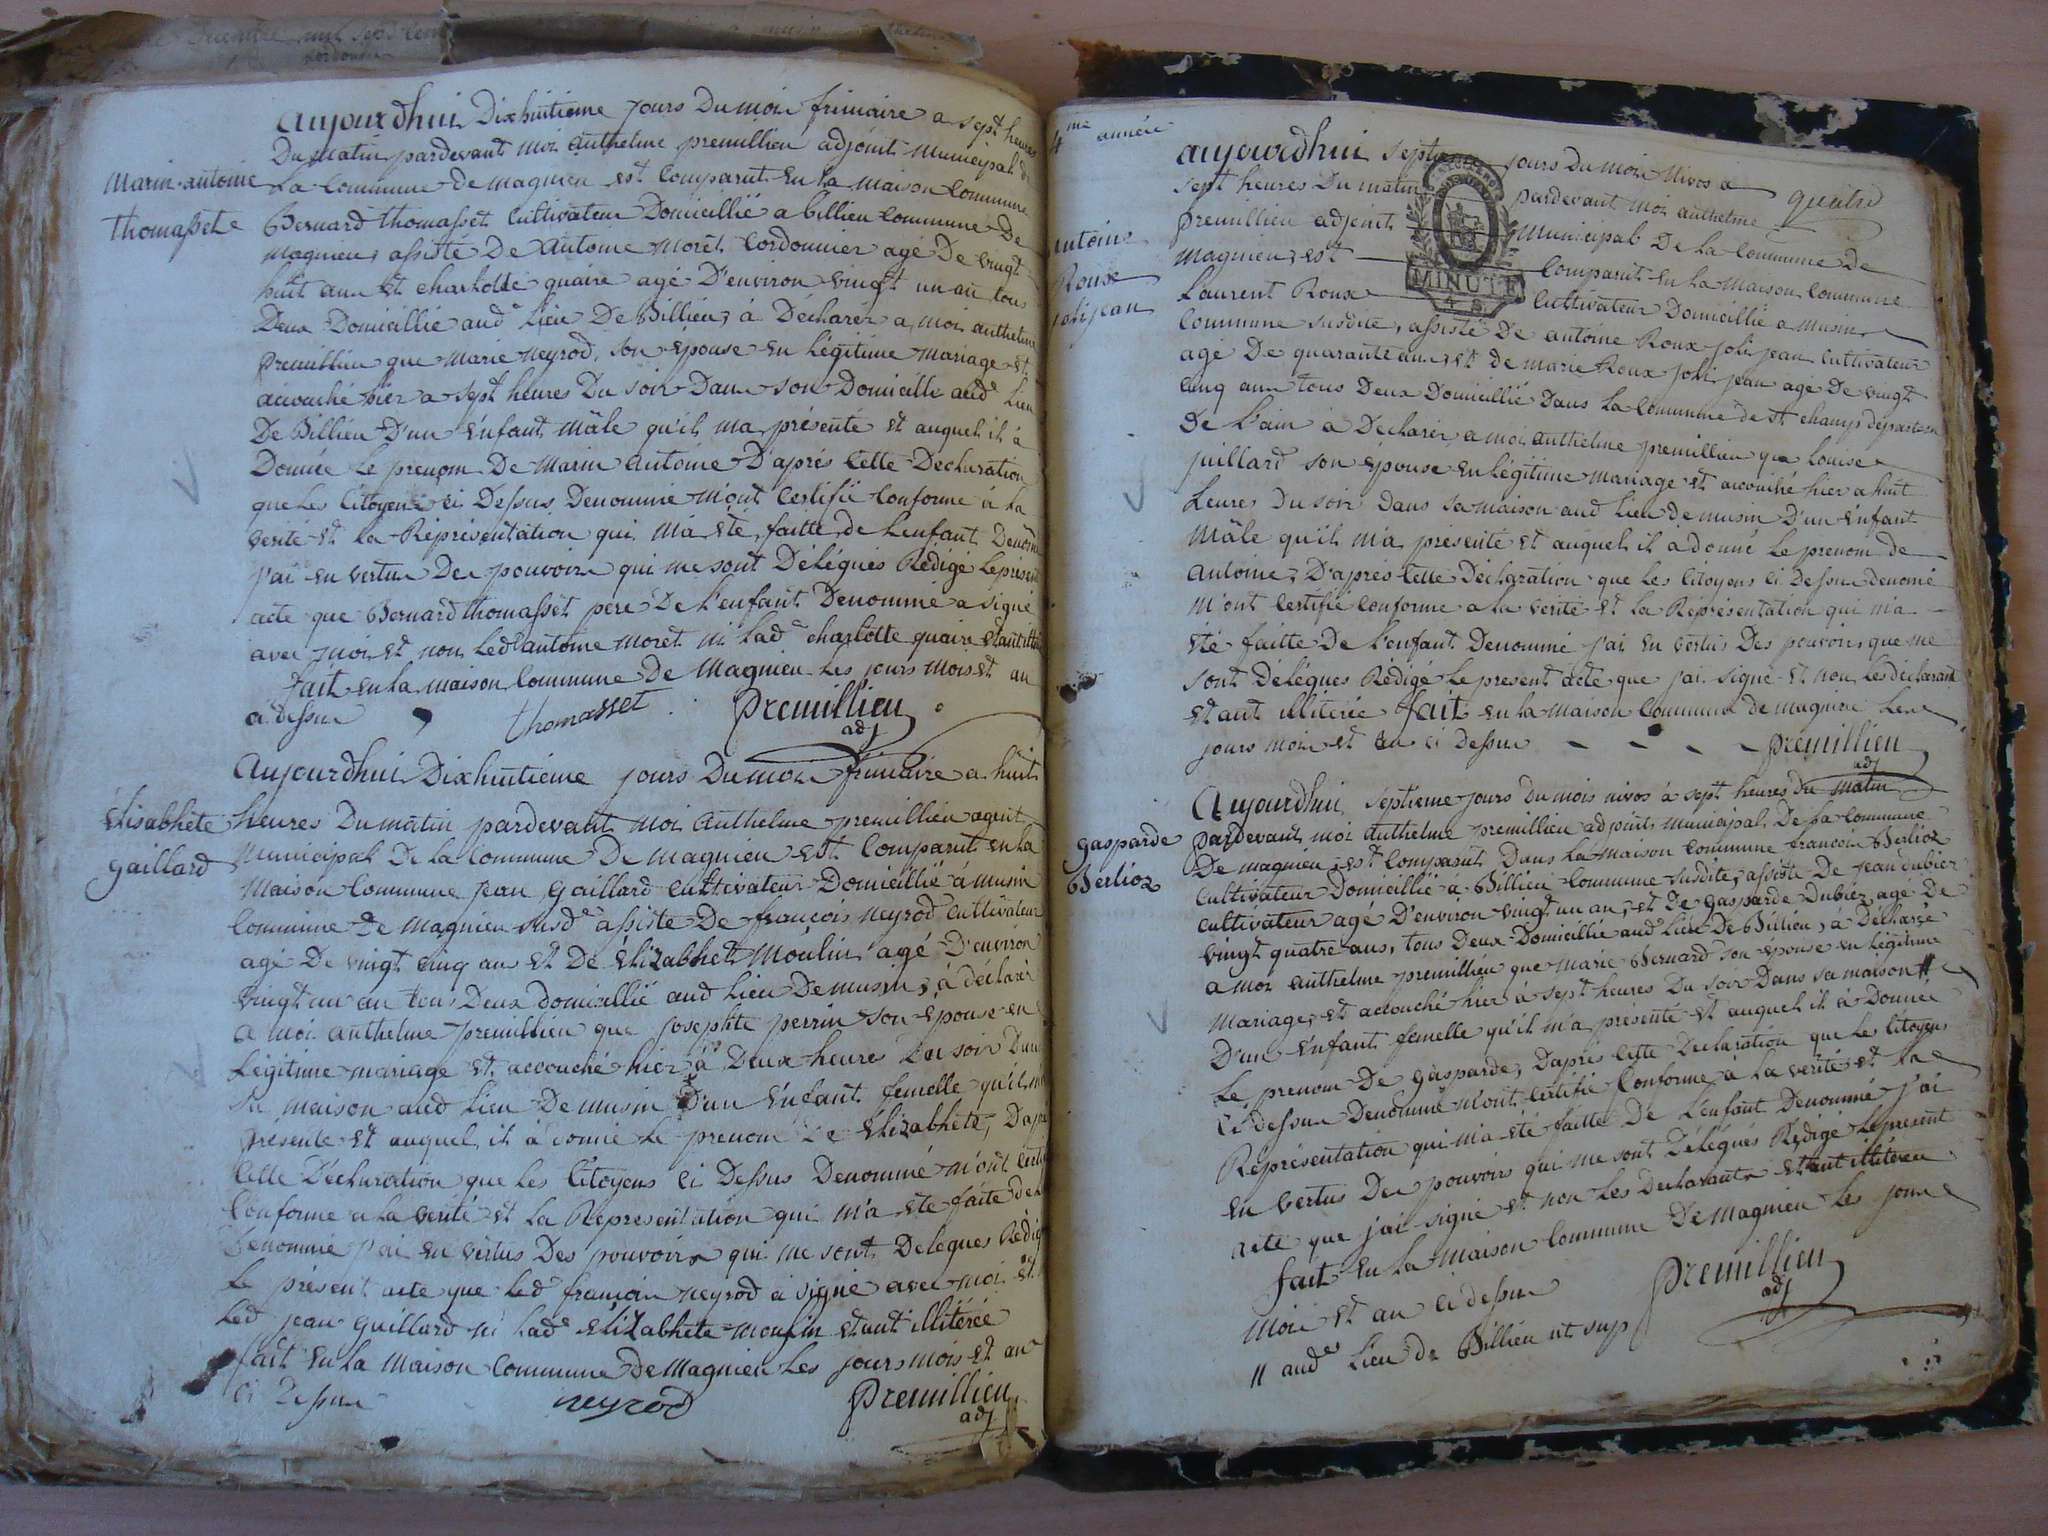 aujourdhui Dixhuitieme jours Du mois frimaire a sept heures
Du matin pardevant moi anthelme premillieu adjoint municipal de
Marin antoine
thomasset
la Commune de magnieu est Comparut en la maison Commune
Bernard thomasset Cultivateur Domicillié a billieu Commune De
magnieu, assisté De antoine moret Cordonnier agé De vingt
huit ans et charlotte quaire agé D'environ vingt un an tous
Deux Domicillié aud.e Lieu De Billieu, à Déclarer a moi anthelme
premillieu que marie neyrod, son épouse en Légitime mariage est
accouché hier a sept heures Du soir Dans son Domicille aud.e Lieu
De Billieu D'un énfant mâle qu'il ma présenté et auquel il à
Donnée Le prenom De Marin antoine D'après Cette Declaration
que Les Citoyens ci Dessus Denommé m'ont Certifié Conforme à la
verité et la Représentation qui m'a été faitte de L'enfant Denommé
j'ai en vertu Des pouvoirs qui me sont Délégués Rédigé Le present
acte que Bernard thomasset pere De L'enfant Denommé a signé
avec moi et non Led.t antoine moret ni Lad.e charlotte quaire étant
fait en La maison Commune De Magnieu Les jours mois et an
ci dessus thomasset premillieu
adj
aujourdhui Dixhuitieme jours Du mois frimaire a huit
Elisabhete
gaillard
heures Du matin pardevant moi anthelme premillieu agent
municipal De La Commune De magnieu est Comparut en La
maison Commune jean gaillard Cultivateur Domicillié à musin
Commune De magnieu susd.e assisté De françois neyrod Cultivateur
agé De vingt cinq an et De élizabhet Moulin agé D'environ
vingt un an tous Deux domicillié aud Lieu De musin, à déclarér
a moi anthelme premillieu que josephte perrin son épouse en
Légitime mariage et accouché hier à Deux heures Du soir Dans
sa maison aud Lieu De musin D'un énfant femelle qu'il m'a
présenté et auquel il à donné Le prenom De élizabhete, D'après
Cette Déclaration que Les Citoyens ci Dessus Denommé m'ont
Conforme a la verité et La Representation qui m'a été faite de
Denommé j'ai en vertus Des pouvoirs qui me sont Delégués Rédigé
Le présent acte que Led françois neyrod a signé avec moi et
Led jean gaillard ni Lad.e élizabhete moulin étant illitérée
fait en La maison Commune De magnieu Les jours mois et an
Ci Dessus neyrod premillieu
adj
4.me année
aujourdhui septieme jours Du mois Nivos a quatre
sept heures Du matin pardevant moi anthelme
MINUTE
4 S
antoine
Roux
joli jean
premillieu adjoint municipal De La Commune De
magnieu, est Comparut en La maison Commune
Laurent Roux Cultivateur Domicillié a musin
Commune susdite, assisté De antoine Roux joli jean Cultivateur
agé De quarante ans, et de marie Roux joli jean agé De vingt
Cinq ans tous Deux Domicillié Dans La Commune de st champ departem
De L'ain à Declarer, a moi anthelme premillieu que Louise
juillard son épouse en Légitime mariage et accouché hier a huit
heures Du soir Dans sa maison aud Lieu de musin D'un énfant
Mâle qu'il m'a présenté et auquel il a donné Le prenom de
Antoine, D'après Cette Déclaration que Les Citoyens ci Dessus denomé
m'ont Certifié Conforme a la verité et La Représentation qui m'a
été faitte De L'enfant Denommé j'ai en vertus Des pouvoirs que me
sont Délégués Rédigé Le present acte que j'ai signé et non Les déclarant
étant illitérée fait en La maison Commune de magnieu Les
jours mois et an ci dessus premillieu
adj
Aujourdhui septieme jours Du mois nivos à sept heures Du matin
gasparde
Berlioz
pardevant moi anthelme premillieu adjoint municipal De La Commune
De magnieu est Comparut Dans La maison Commune francois Berlioz
cultivateur Domicillié à Billieu Commune susdite, assisté De jean Dubiez
cultivateur agé D'environ vingt un an, et De gasparde Dubiez agé De
vingt quatre ans, tous Deux Domicillié aud Lieu De Billieu, à Déclaré
a moi anthelme premillieu que marie Bernard son épouse en Légitime
mariage, est accouché hier à sept heures Du soir Dans sa maison #
D'un énfant femelle qu'il m'a présenté et auquel il à Donnée
Le prenom De gasparde, D'après Cette Declaration que Les Citoyens
ci dessus Denommé m'ont Certifié Conforme a la verité et La
Représentation qui m'a été faitte De L'enfant Denommé j'ai
en vertus Des pouvoirs qui me sont Délégués Rédigé Le present
acte que j'ai signé et non Les declarants étant illitérée
fait en La maison Commune De magnieu Les jours
mois et an ci dessus premillieu
adj
# aud.e Lieu De Billieu ut sup